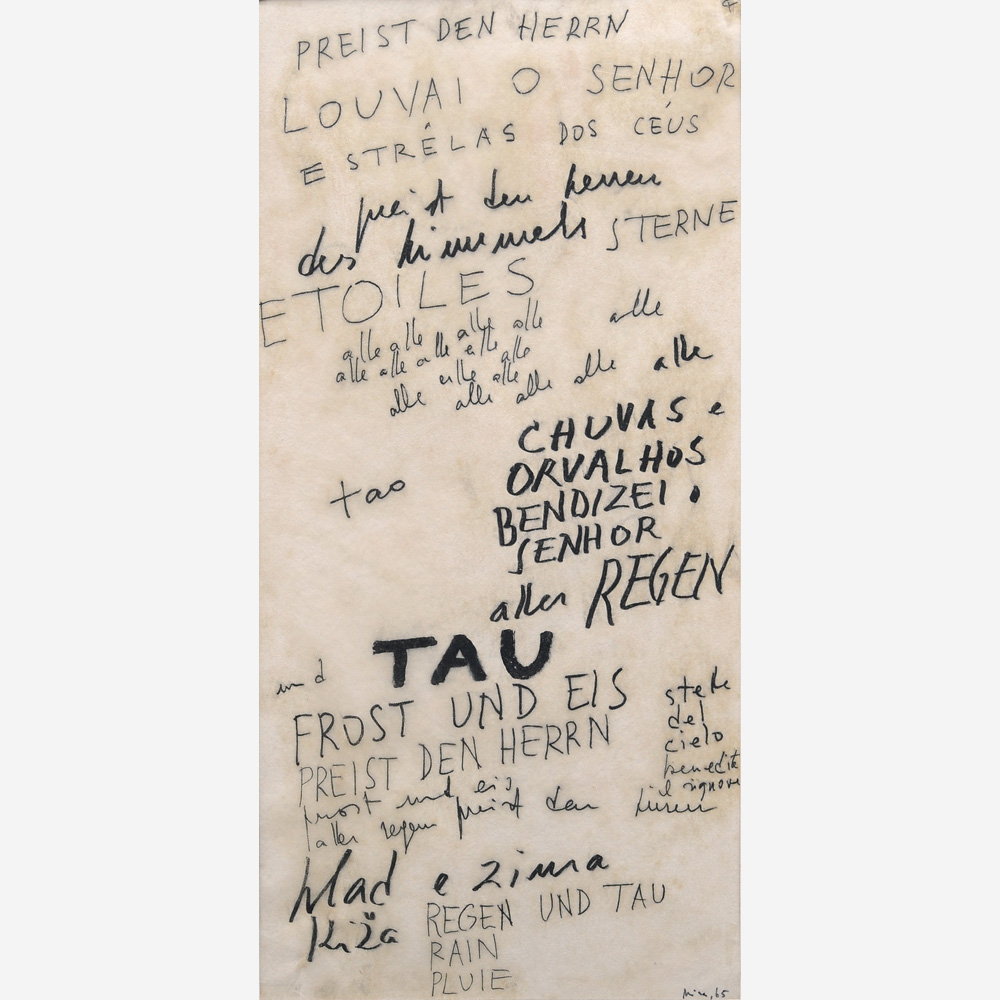 PREIST DEN HERRN
LOUVAI O SENHOR
ESTRÊLAS DOS CÉUS
preist den herren
des himmels STERNE
ETOILES
alle alle alle alle alle
alle alle alle alle alle
alle alle alle
alle alle alle alle alle
CHUVAS e
ORVALHOS
BENDIZEI o
SENHOR
tao
aller REGEN
TAU
und
FROST UND EIS
PREIST DEN HERRN
stelle
del
cielo
benedite
il signore
frost und eis
aller regen preist den herren
hlad e zima
kiža
REGEN UND TAU
RAIN
PLUIE